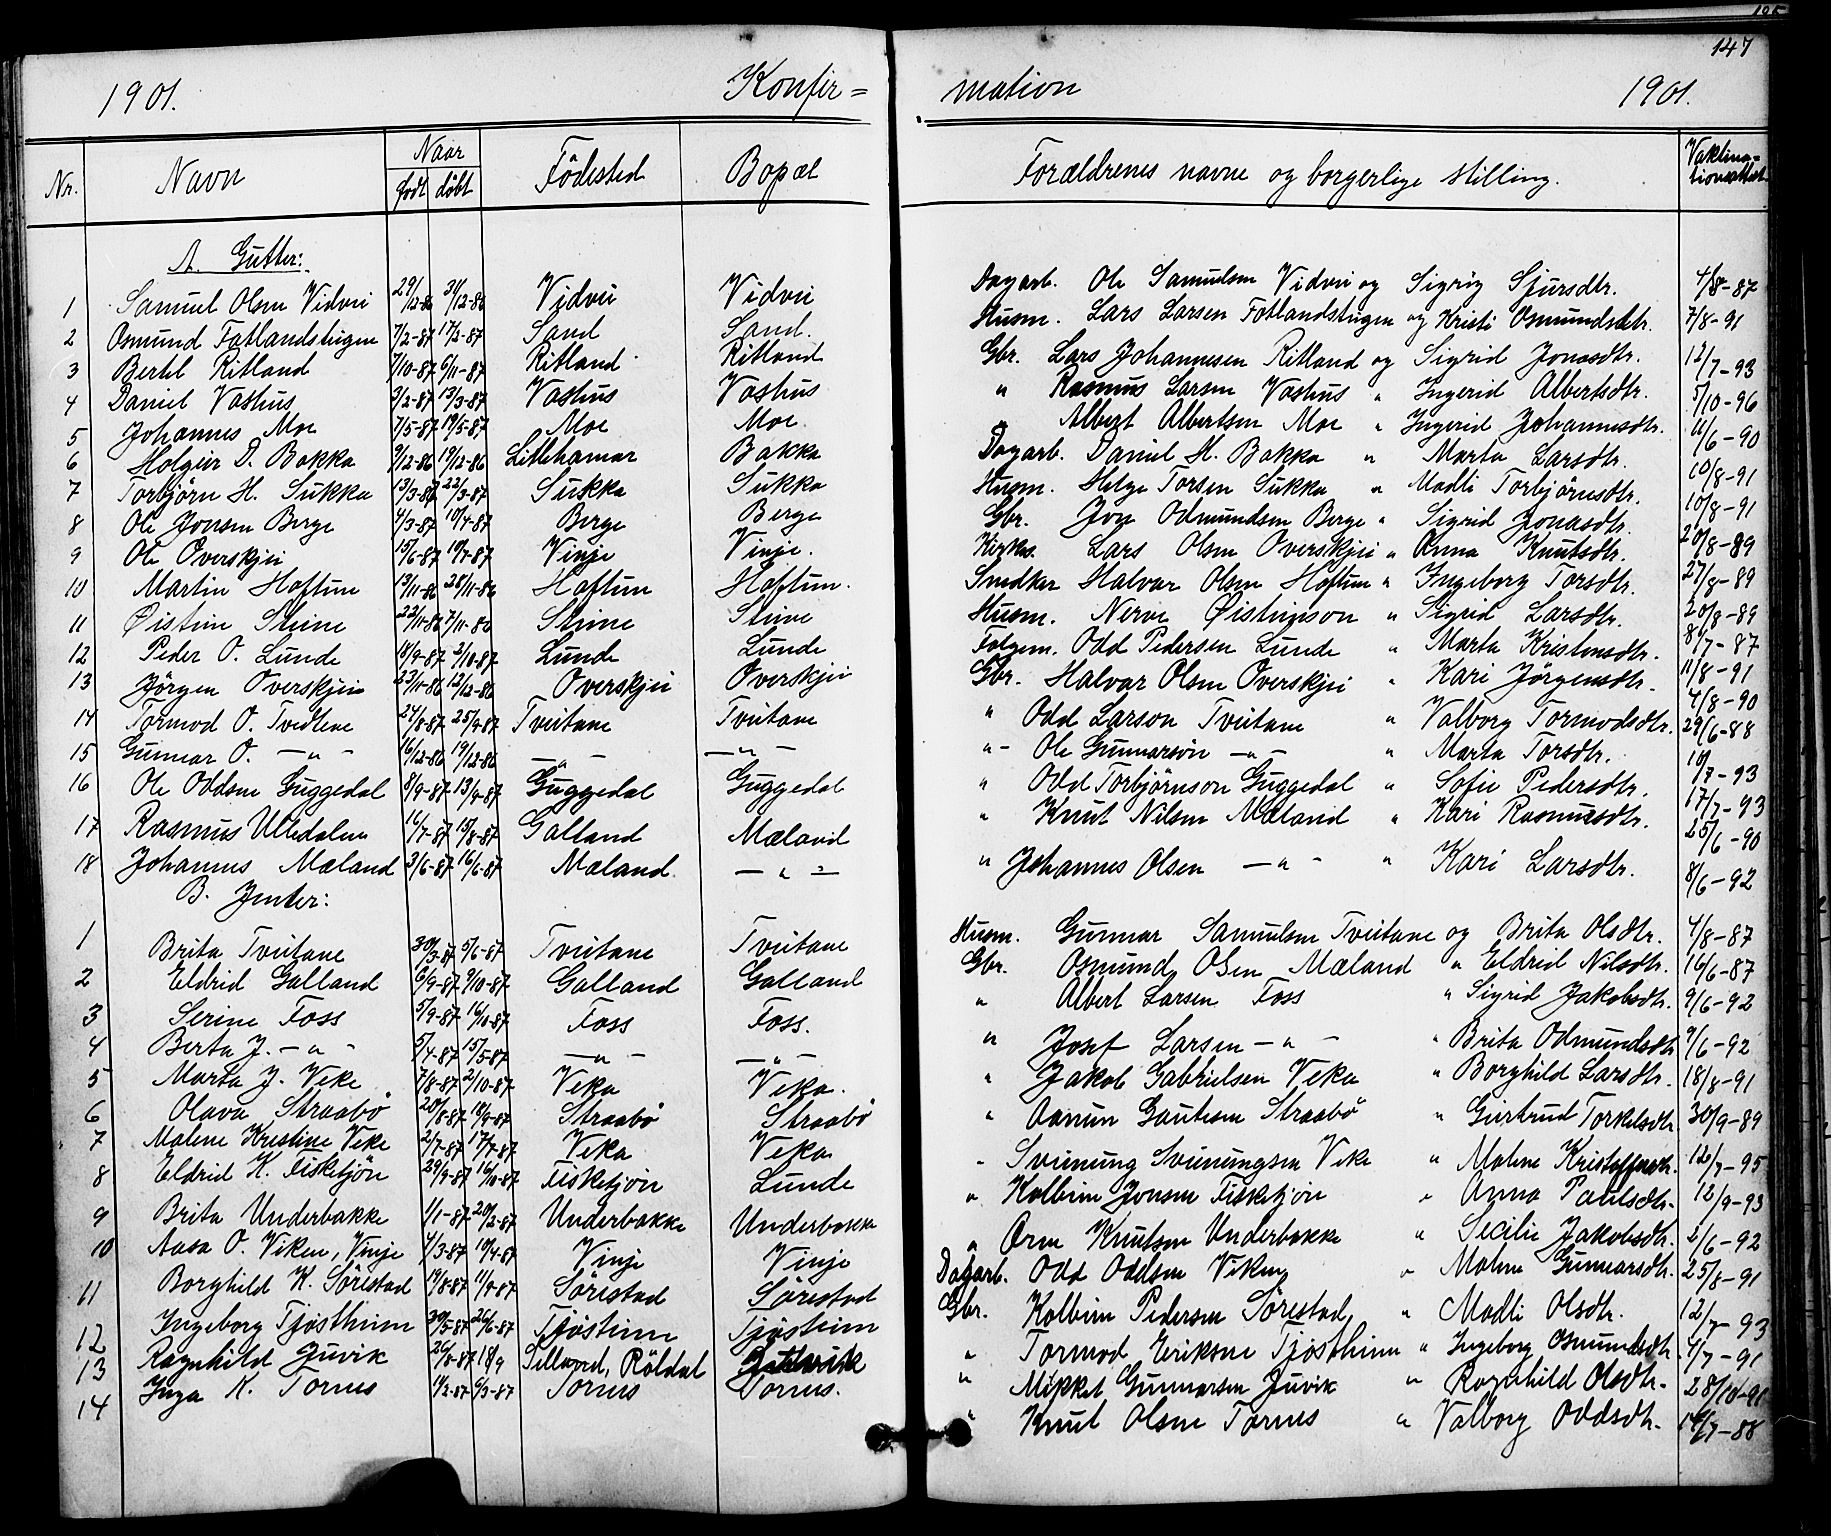 147
1901. Konfir= mation 1901.
Nr. Navn Naar födt döbt Födested Bopæl Forældrenes navne og borgerlige stilling.
A. Gutter:
1 Samuel Olsen Vidvei 29/12-86 31/12-86 Vidvei Vidvei Dagarb. Ole Samuelsen Vidvei og Sigrig Sjursdtr. 4/8-87
2 Osmund Fatlandstuigen 7/2-87 17/2-87 Sand Sand. Husm. Lars Larsen Fatlandstuigen og Kristi Osmundsdtr. 7/8-91
3 Bertel Ritland 7/10-87 6/11-87 Ritland Ritland Gbr. Lars Johannesen Ritland og Sigrid Jonasdtr. 12/7-93
4 Daniel Vashus 3/2-87 13/3-87 Vashus Vashus " Rasmus Larsen Vashus " Ingerid Albertsdtr. 5/10-96
5 Johannes Moe 7/5-87 19/5-87 Moe Moe. Albert Albertsen Moe " Ingerid Johannesdtr. 11/6-90
6 Holgeir D. Bakka 9/12-86 19/12-86 Litlehamar Bakka Dagarb. Daniel H. Bakka " Marta Larsdtr. 10/8-91
7 Torbjörn H. Sukka 13/3-86 22/3-87 Sukka Sukka Husm. Helge Torsen Sukka " Madli Torbjörnsdtr. 10/8-91
8 Ole Jonsen Berge 4/3-87 10/4-87 Berge Berge Gbr. Jon Odmundsen Berge " Sigrid Jonasdtr. 20/8-89
9 Ole Överskjei 15/6-87 10/7-87 Vinje Vinje. Kirkes. Lars Olsen Överskjei " Anna Knutsdtr. 27/8-89
10 Martin Haftun 13/11-86 28/11-86 Haftun Haftun. Snedker Halvar Olsen Haftun " Ingeborg Torsdtr. 20/8-89
11 Øistein Steine 22/10-86 7/11-86 Steine Steine Husm. Nerve Øistingson " Sigrid Larsdtr. 8/7-87
12 Peder O. Lunde 18/9-87 2/10-87 Lunde Lunde Folgem. Odd Pedersen Lunde " Marta Kristensdtr. 11/8-91
13 Jörgen Överskjei 23/11-86 12/12-86 Överskjei Överskjei Gbr. Halvar Olsen Överskjei " Kari Jörgensdtr. 4/8-90
14 Tormod O. Tveitene 27/8-87 25/9-87 Tveitane Tveitane " Odd Larson Tveitane " Valborg Tormodsdtr. 29/6-88
15 Gunnar O. — " - 16/12-86 19/12-86 — " — — " — " - Ole Gunnarsön — " - " Marta Torsdtr. 10/7-93
16 Ole Oddsen Guggedal 8/9-87 13/9-87 Guggedal Guggedal " Odd Torbjörnson Guggedal " Sofie Pedersdtr. 17/7-93
17 Rasmus Ulledalen 16/7-87 15/8-87 Galland Mæland " Knut Nilsen Mæland " Kari Rasmusdtr. 25/6-90
18 Johannes Mæland 3/6-87 16/6-87 Mæland. — " — " Johannes Olsen — " - " Kari Larsdtr. 8/6-92
B. Jenter:
1 Brita Tveitane 30/3-87 5/6-87 Tveitane Tveitane Husm. Gunnar Samuelsen Tveitane og Brita Olsdtr. 4/8-87
2 Eldrid Galland 6/9-87 9/10-87 Galland Galland Gbr. Osmund Olsen Mæland " Eldrid Nilsdtr. 16/6-87
3 Serine Foss 5/9-87 16/10-87 Foss Foss. " Albert Larsen Foss " Sigrid Jakobsdtr. 9/6-92
4 Berta J. — " - 5/4-87 15/5-87 — " - — " — " Josef Larsen — " - " Brita Odmundsdtr. 9/6-92
5 Marta J. Veke 7/8-87 2/10-87 Veka Veka. " Jakob Gabrielsen Veka " Borghild Larsdtr. 18/8-91
6 Olava Straabö 20/8-87 18/9-87 Straabö Straabö " Aanun Gautsen Straabö " Gjertrud Torkelsdtr. 30/9-89
7 Malene Kristine Veke 2/7-87 17/7-87 Veka Veka " Sveinung Sveinungsen Veke " Malene Kristoffersdtr. 12/7-95
8 Eldrid K. Fisketjön 29/9-87 16/10-87 Fisketjön Lunde " Kolbein Jonsen Fisketjön " Anna Paulsdtr. 12/9-93
9 Brita Underbakke 1/1-87 20/2-87 Underbakke Underbakke " Orm Knutsen Underbakke " Secilie Jakobsdtr. 2/6-92
10 Aasa O. Viken, Vinje 4/3-87 10/4-87 Vinje Vinje Dagarb. Odd Oddsen Viken " Malene Gunnarsdtr. 25/8-91
11 Borghild K. Sörestad 14/8-87 11/9-87 Sörestad Sörestad Gbr. Kolbein Pedersen Sörestad " Madli Olsdtr. 12/7-93
12 Ingeborg Tjöstheim 30/5-87 26/6-87 Tjösteim Tjösteim " Tormod Eriksen Tjöstheim " Ingeborg Osmundsdtr. 4/7-91
13 Ragnhild Juvik 26/8-87 18/9 Röldal " Mikkel Gunnarsen Juvik " Ragnhild Olsdtr. 28/10-91
14 Inga K. Tornes 11/2-87 6/3-87 Tornes Tornes. " Knut Olsen Tornes " Valborg Oddsdtr. 14/7-88